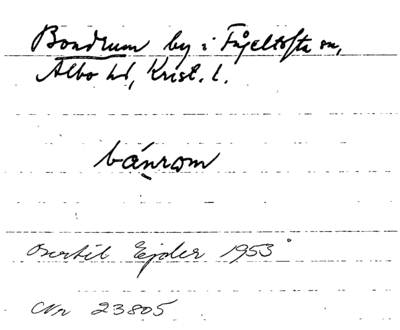 Bondrum by i Fågeltofta sn,
Albo hd, Krist. l.
bánrom
Bertil Ejder 1953
Nr 23805